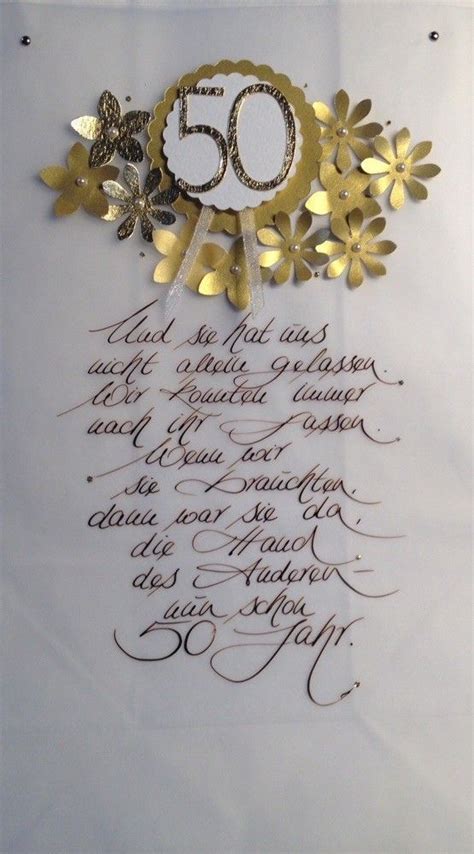 50
Und sie hat uns
nicht allein gelassen.
Wir konnten immer
nach ihr fassen.
Wenn wir
sie brauchten,
dann war sie da,
die Hand
des Anderen –
nun schon
50 Jahr.